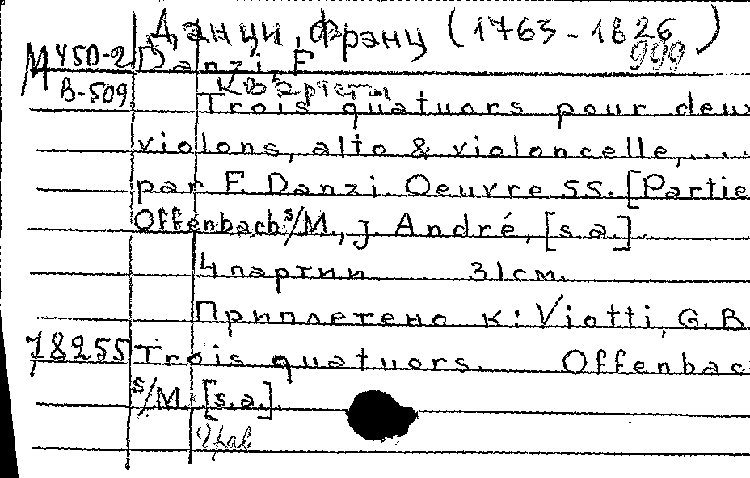 Данци, Франц (1763-1826)
999
М 450-2 Danzi, F
В-509 Квартеты
Trois quatuors pour deux
violons, alto & violoncelle,....
par F. Danzi. Oeuvre 55. [Partie
Offenbach s/M., J. André, [s.a.].
4 партии 31см.
Приплетено к: Viotti, G.B
78255 Trois quatuors. Offenbac
s/M. [s.a.].